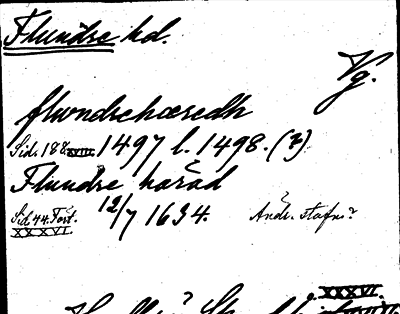 Flundre hd.
Vg.
flwndrehæredh
Sid. 188 XVIII. 1497 l. 1498. (3)
Flundre härad
Sid. 44. Fort. 12/7 1634. Andr. stafn?
XXXVI.
XXXVI.